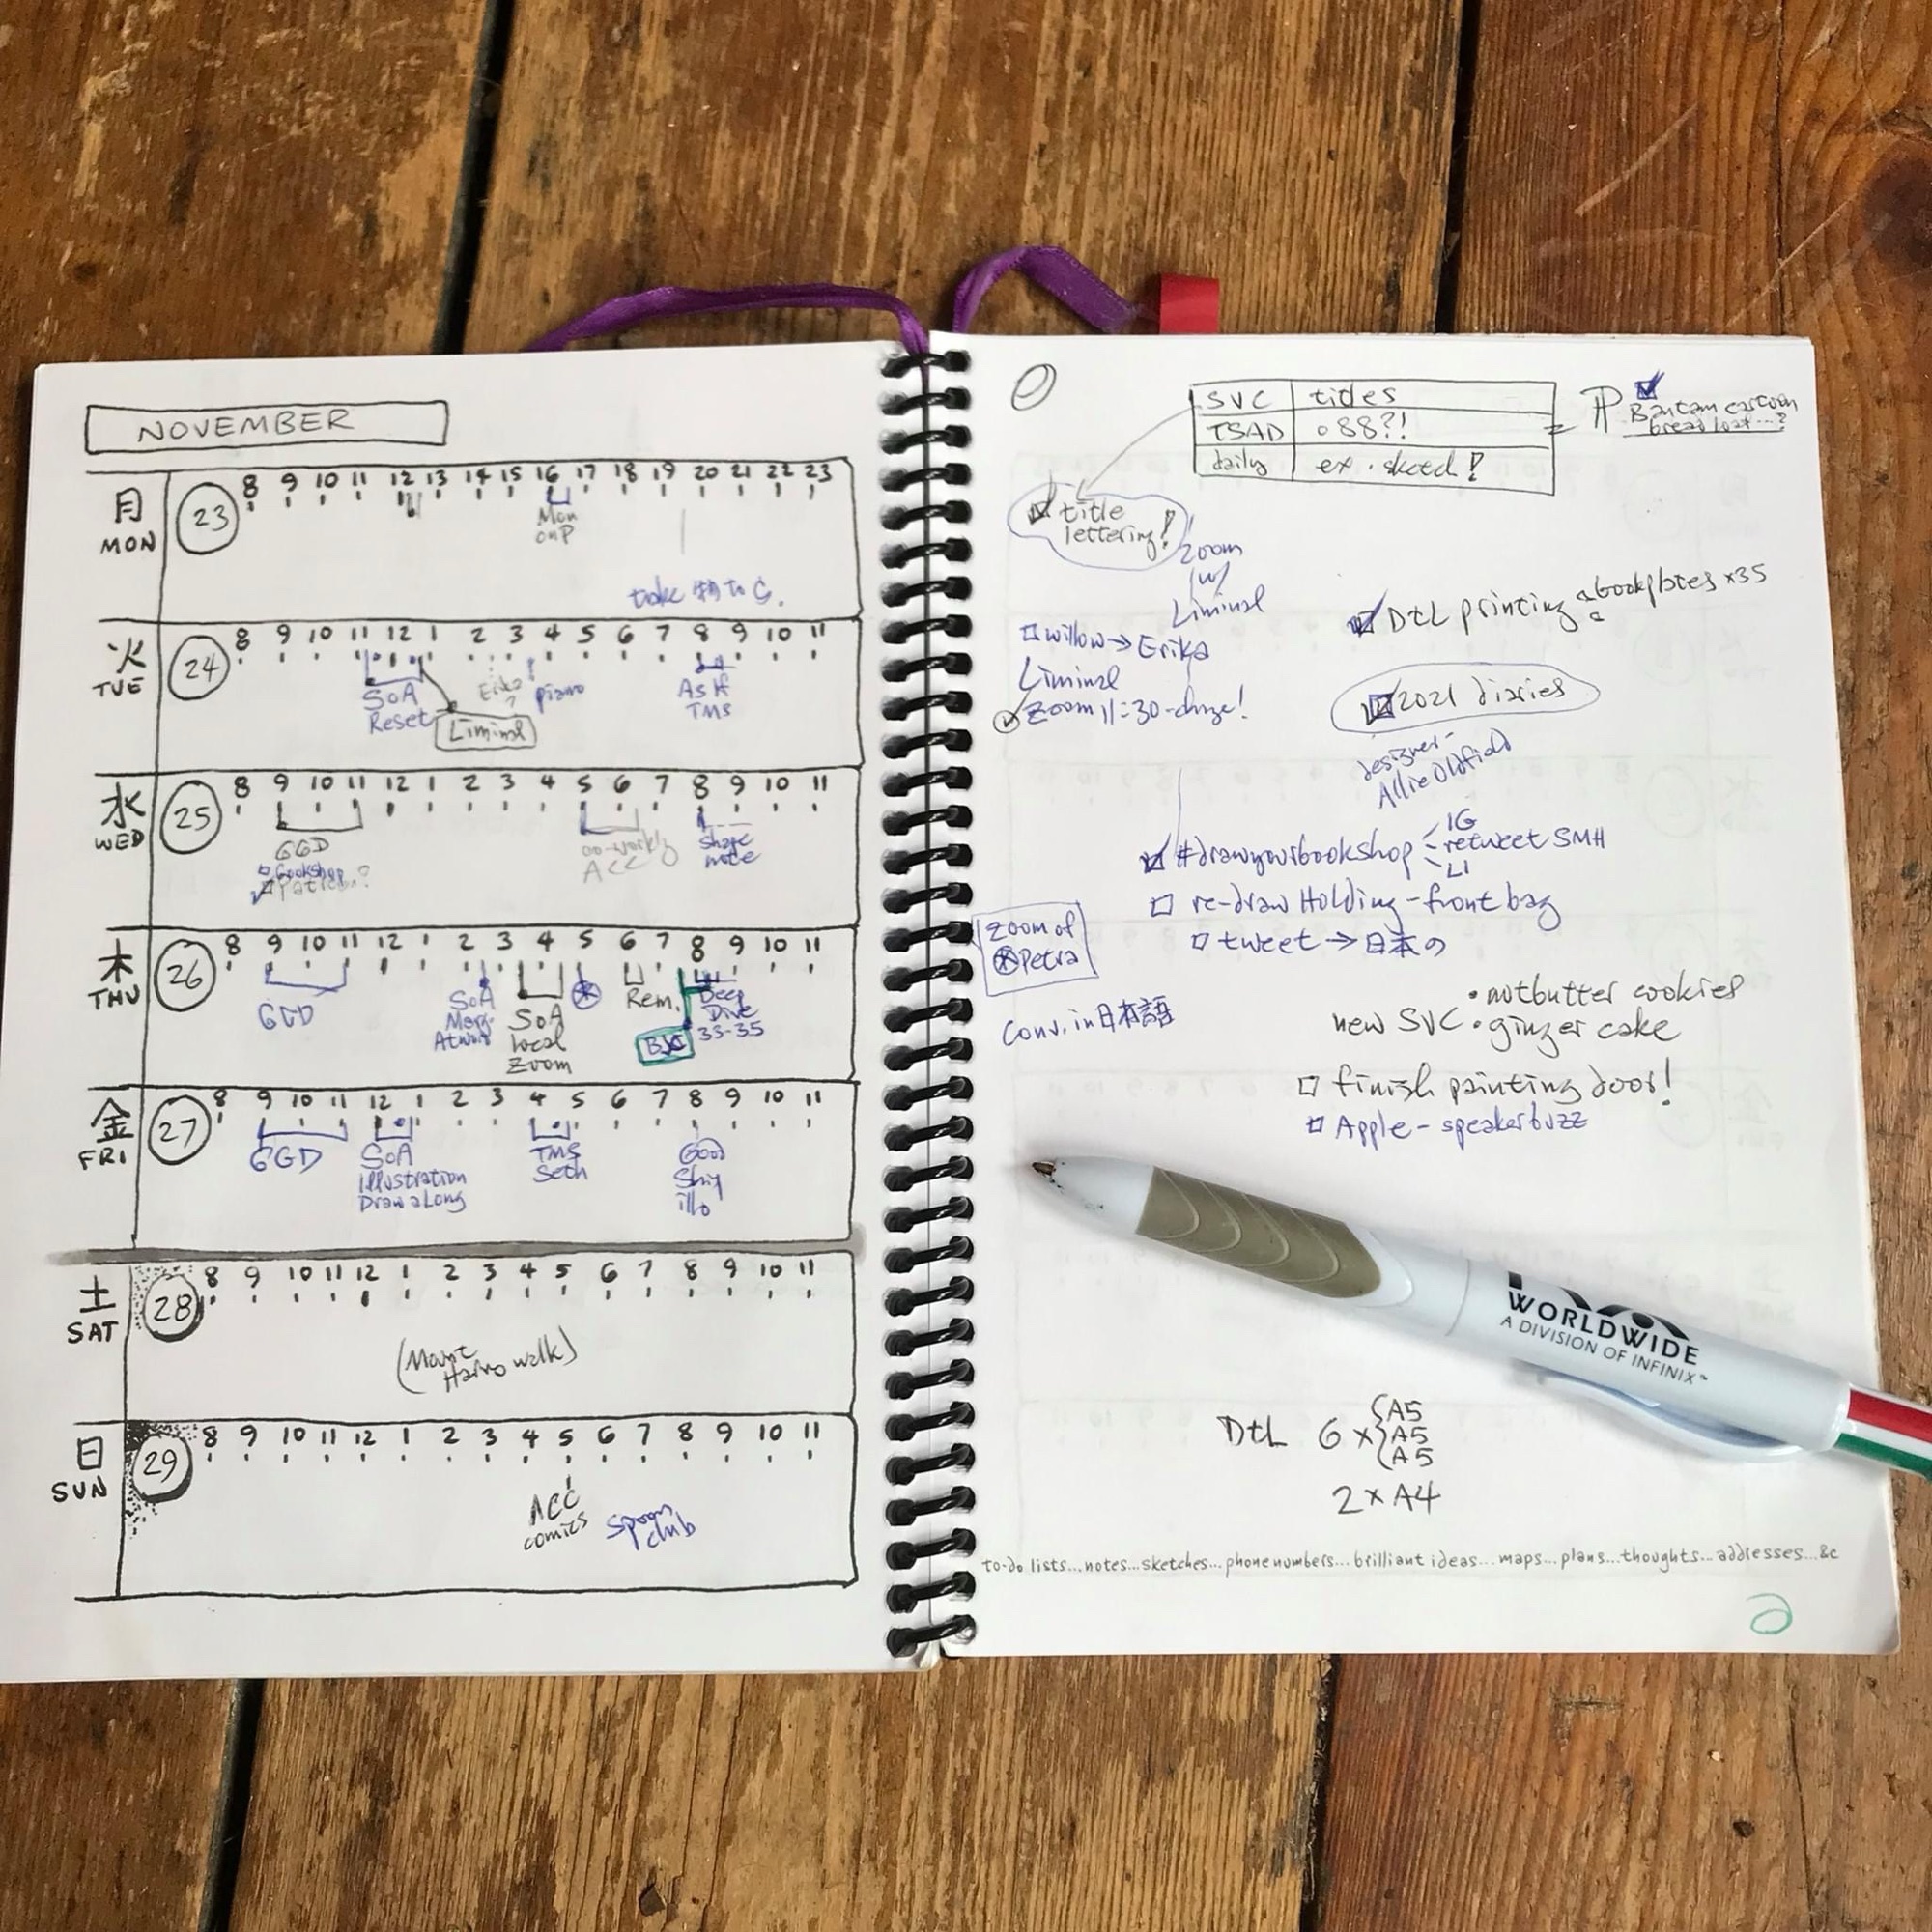 NOVEMBER
月
MON
23
8 9 10 11 12 13 14 15 16 17 18 19 20 21 22 23
Mon
take to C.
火
TUE
24
8 9 10 11 12 1 2 3 4 5 6 7 8 9 10 11
SoA
Reset
Liminal
piano
Ask
TMS
水
WED
25
8 9 10 11 12 1 2 3 4 5 6 7 8 9 10 11
GGD
Bookshop
Patreon?
co-working
ACC
shape
note
木
THU
26
8 9 10 11 12 1 2 3 4 5 6 7 8 9 10 11
GGD
SoA
SoA
local
Zoom
Rem.
Deep
Dive
33-35
金
FRI
27
8 9 10 11 12 1 2 3 4 5 6 7 8 9 10 11
GGD
SoA
illustration
Draw along
TMS
Seth
Good
Ship
illo
土
SAT
28
8 9 10 11 12 1 2 3 4 5 6 7 8 9 10 11
walk)
日
SUN
29
8 9 10 11 12 1 2 3 4 5 6 7 8 9 10 11
ACC
comics
spoon
club
SVC titles
TSAD 088?!
daily ex.
Bantam cartoon
title
lettering!
zoom
w/
Liminal
willow → Erika
Liminal
Zoom 11:30-
DtL printing bookplates x35
2021 diaries
designer-
Allie Oldfield
#drawyourbookshop
IG
retweet SMH
LI
re-draw Holding-front bag
tweet → 日本の
zoom of
Petra
Conv. in 日本語
• nutbutter cookies
new SVC • ginger cake
finish painting door!
Apple - speaker buzz
WORLDWIDE
A DIVISION OF INFINIX™
DtL 6 x
A5
A5
A5
2 x A4
to-do lists...notes...sketches...phone numbers...brilliant ideas...maps...plans...thoughts...addresses...&c